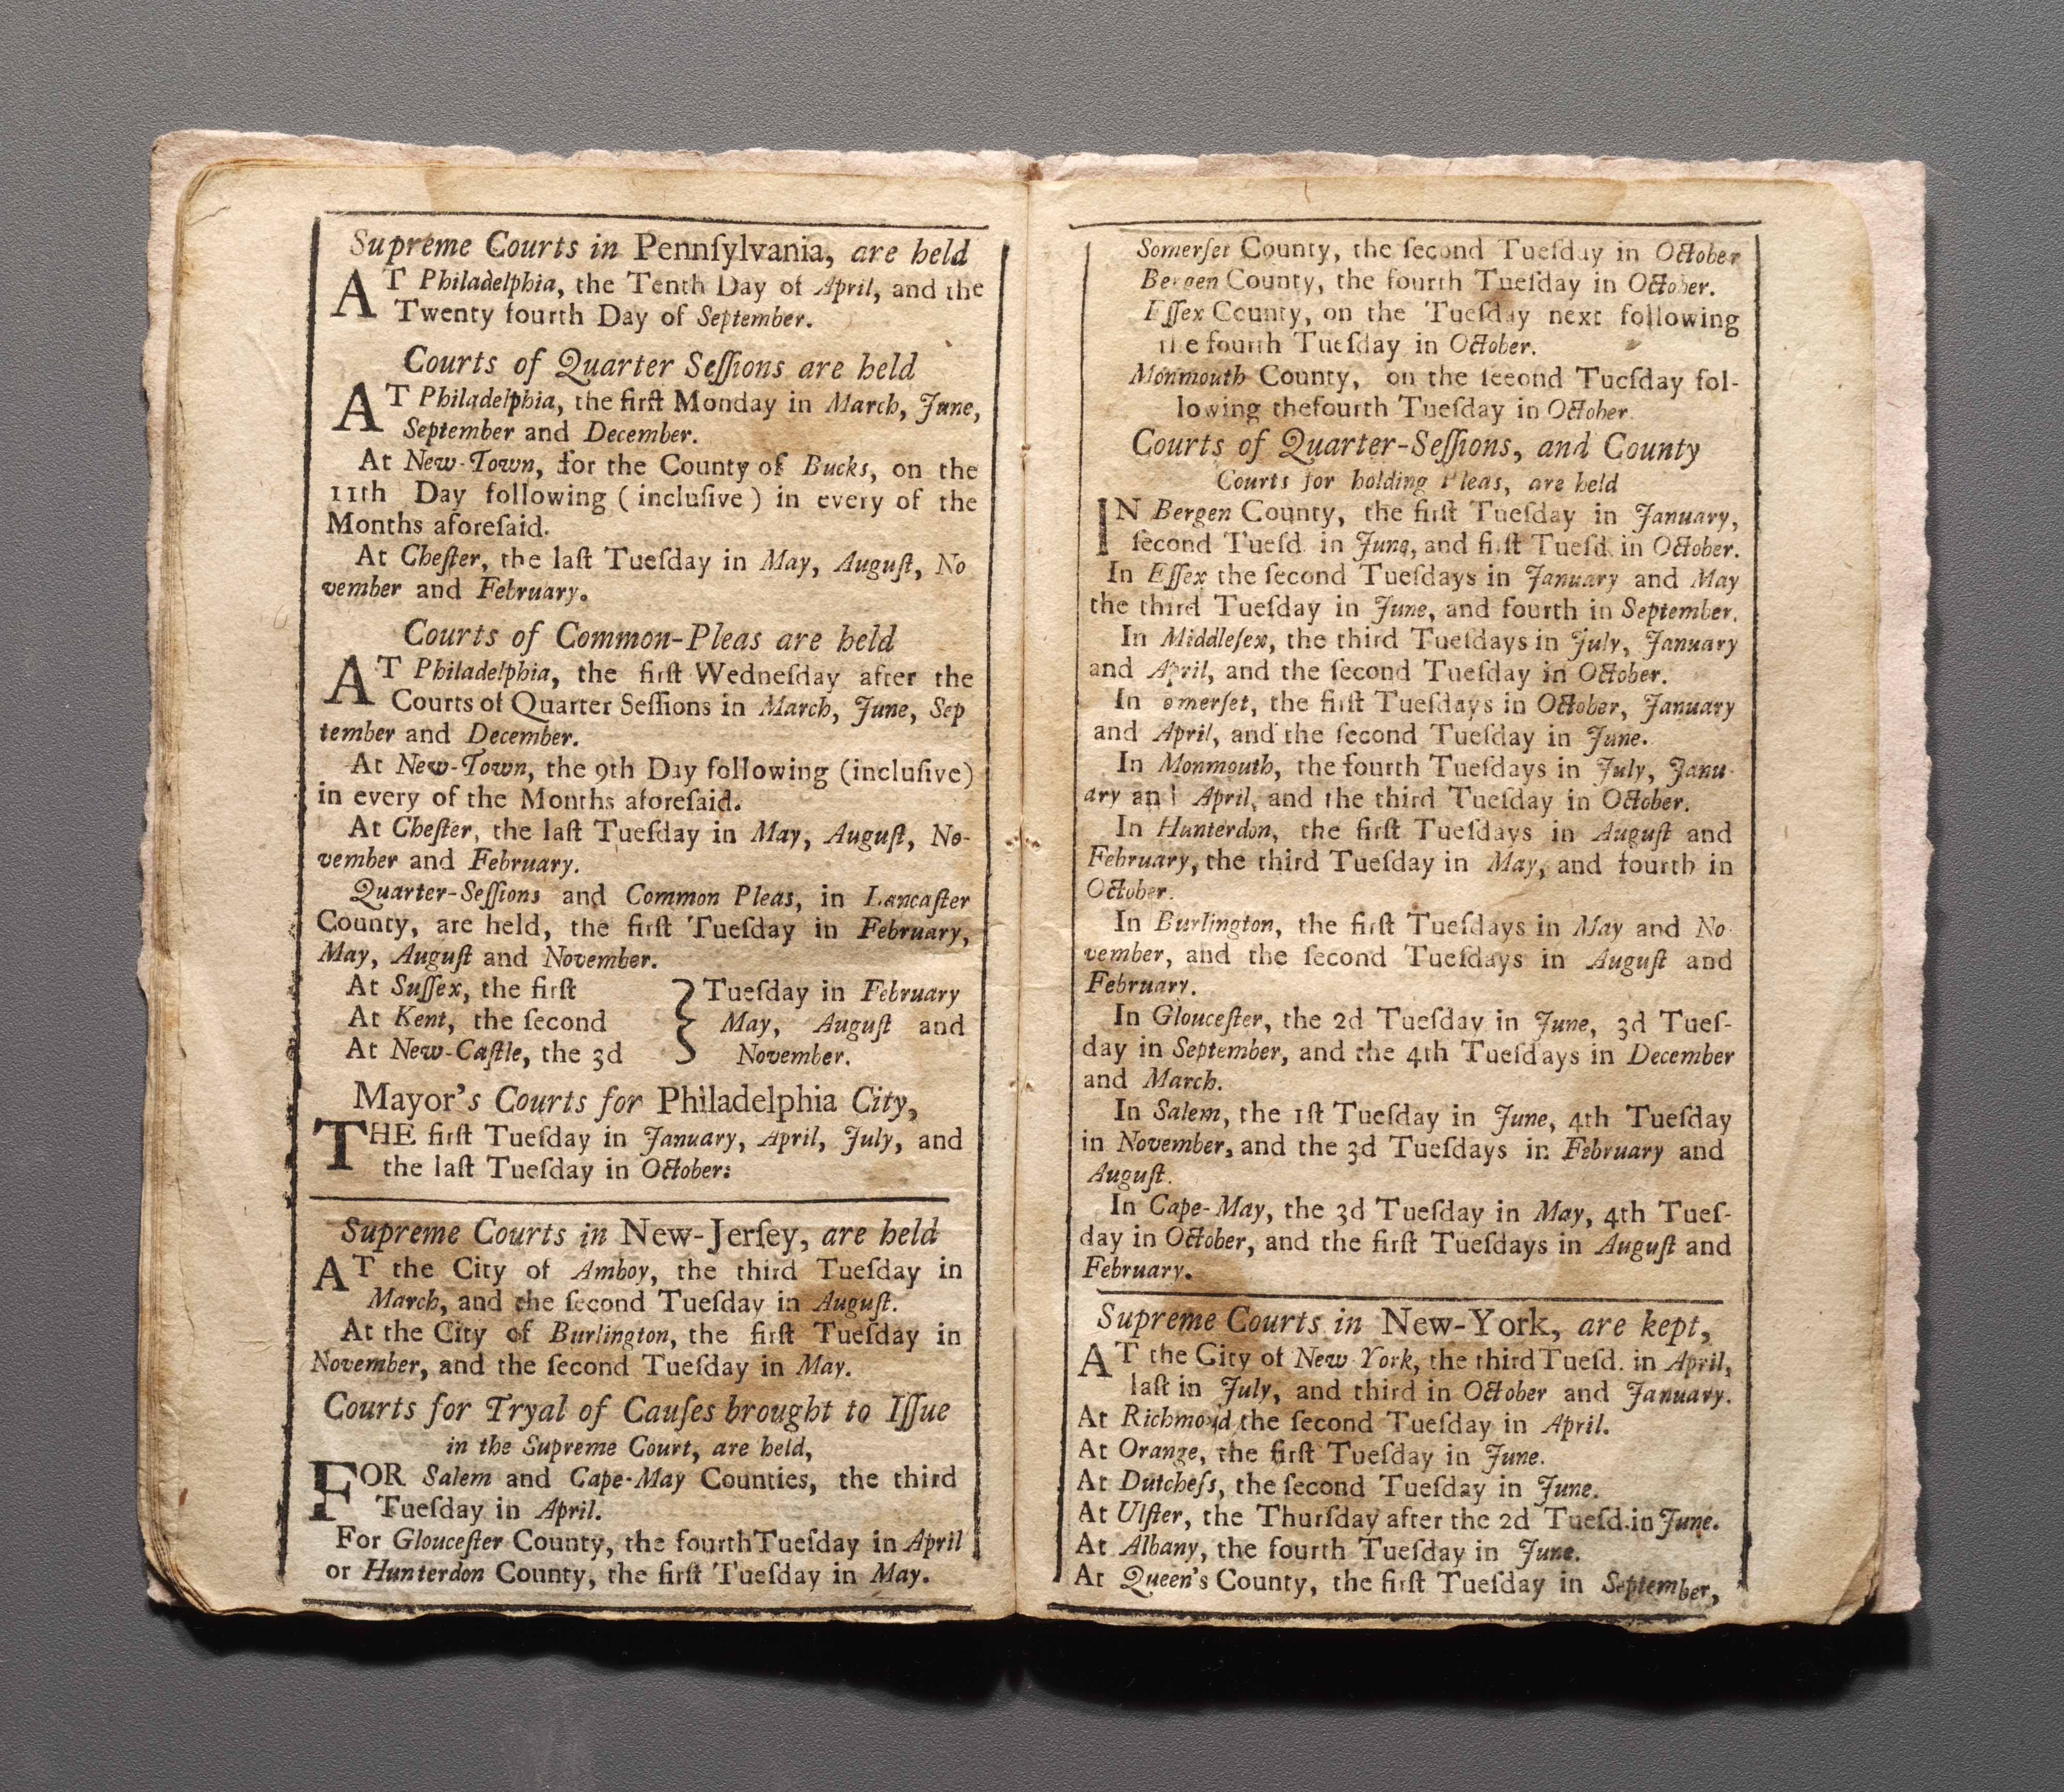 Supreme Courts in Pennſylvania, are held
AT Philadelphia, the Tenth Day of April, and the
Twenty fourth Day of September.
Courts of Quarter Seſſions are held
AT Philadelphia, the firſt Monday in March, June,
September and December.
At New-Town, for the County of Bucks, on the
11th Day following (incluſive) in every of the
Months aforeſaid.
At Cheſter, the laſt Tueſday in May, Auguſt, No
vember and February.
Courts of Common-Pleas are held
AT Philadelphia, the firſt Wedneſday after the
Courts of Quarter Seſſions in March, June, Sep
tember and December.
At New-Town, the 9th Day following (incluſive)
in every of the Months aforeſaid.
At Cheſter, the laſt Tueſday in May, Auguſt, No-
vember and February.
Quarter-Seſſions and Common Pleas, in Lancaſter
County, are held, the firſt Tueſday in February,
May, Auguſt and November.
At Suſſex, the firſt } Tueſday in February
At Kent, the ſecond } May, Auguſt and
At New-Caſtle, the 3d } November.
Mayor's Courts for Philadelphia City,
THE firſt Tueſday in January, April, July, and
the laſt Tueſday in October:
Supreme Courts in New-Jerſey, are held
AT the City of Amboy, the third Tueſday in
March, and the ſecond Tueſday in Auguſt.
At the City of Burlington, the firſt Tueſday in
November, and the ſecond Tueſday in May.
Courts for Tryal of Cauſes brought to Iſſue
in the Supreme Court, are held,
FOR Salem and Cape-May Counties, the third
Tueſday in April.
For Glouceſter County, the fourth Tueſday in April
or Hunterdon County, the firſt Tueſday in May.
Somerſet County, the ſecond Tueſday in October
Bergen County, the fourth Tueſday in October.
Eſſex County, on the Tueſday next following
the fourth Tueſday in October.
Monmouth County, on the ſeeond Tueſday fol-
lowing thefourth Tueſday in October.
Courts of Quarter-Seſſions, and County
Courts for holding Pleas, are held
IN Bergen County, the firſt Tueſday in January,
ſecond Tueſd. in June, and firſt Tueſd. in October.
In Eſſex the ſecond Tueſdays in January and May
the third Tueſday in June, and fourth in September.
In Middleſex, the third Tueſdays in July, January
and April, and the ſecond Tueſday in October.
In omerſet, the firſt Tueſdays in October, January
and April, and the ſecond Tueſday in June.
In Monmouth, the fourth Tueſdays in July, Janu-
ary and April, and the third Tueſday in October.
In Hunterdon, the firſt Tueſdays in Auguſt and
February, the third Tueſday in May, and fourth in
October.
In Burlington, the firſt Tueſdays in May and No-
vember, and the ſecond Tueſdays in Auguſt and
February.
In Glouceſter, the 2d Tueſday in June, 3d Tueſ-
day in September, and the 4th Tueſdays in December
and March.
In Salem, the 1ſt Tueſday in June, 4th Tueſday
in November, and the 3d Tueſdays in February and
Auguſt.
In Cape-May, the 3d Tueſday in May, 4th Tueſ-
day in October, and the firſt Tueſdays in Auguſt and
February.
Supreme Courts in New-York, are kept,
AT the City of New York, the third Tueſd. in April,
laſt in July, and third in October and January.
At Richmond, the ſecond Tueſday in April.
At Orange, the firſt Tueſday in June.
At Dutcheſs, the ſecond Tueſday in June.
At Ulſter, the Thurſday after the 2d Tueſd. in June.
At Albany, the fourth Tueſday in June.
At Queen's County, the firſt Tueſday in September,